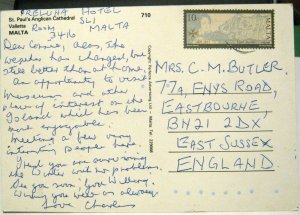 St. Paul's Anglican Cathedral
Valletta
MALTA
710
PRELUNA HOTEL
SLI
Room 3416 MALTA
Dear Connie, Alas, the
weather has changed, but
still better than at home.
An opportunity to visit
museums and other
places of interest on the
Island which has been
most enjoyable.
Meeting a few very
interesting people here.
Hope you are surviving
the Winter with no problems.
See you soon, God willing.
Wishing you well as always.
Love Charles
10
MALTA
MRS. C. M. BUTLER
77A, ENYS ROAD,
EASTBOURNE,
BN21 2DX
EAST SUSSEX
ENGLAND